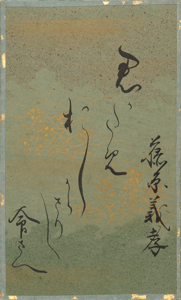 藤原義孝
君かため
おし
からさり
し
命さへ